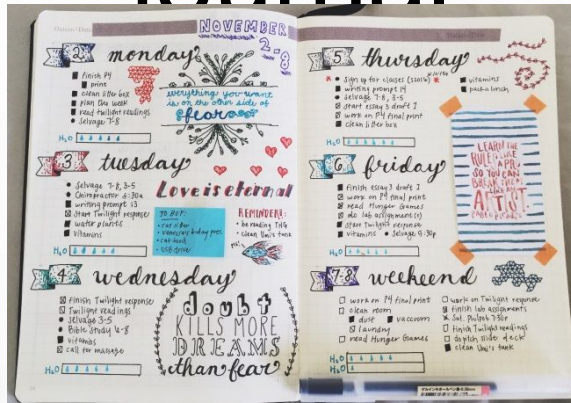 NOVEMBER
2-8
2
monday
finish P4
print
clean litter box
plan the week
read twilight readings
Selvage 7-8
H2O
everything you want
is on the other side of
fear
3
tuesday
Selvage 7-8, 3-5
Chiropractor 6:30a
writing prompt 13
Start Twilight response
water plants
vitamins
H2O
Love is eternal
TO BUY:
cat litter
cat food
USB drive
REMINDERS:
be reading THG
clean Uni's tank
4
wednesday
finish Twilight response
Twilight readings
Selvage 3-5
Bible Study 6-8
vitamins
call for massage
H2O
doubt
KILLS MORE
DREAMS
than fear
5
thursday
Sign up for classes
writing prompt 14
Selvage 7-8, 3-5
Start essay 3 draft 1
work on P4 final print
clean litter box
vitamins
pack a lunch
H2O
LEARN THE
RULES LIKE
A PRO,
SO YOU CAN
BREAK THEM
LIKE AN
ARTIST.
PABLO PICASSO
6
friday
Finish essay 3 draft 1
work on P4 final print
read Hunger Games
do lab assignment(s)
Start Twilight response
vitamins
Selvage 4:30p
H2O
7-8
weekend
work on P4 final print
clean room
dust
vacuum
laundry
read Hunger Games
work on Twilight response
finish lab assignments
finish Twilight readings
clean Uni's tank
H2O
H2O